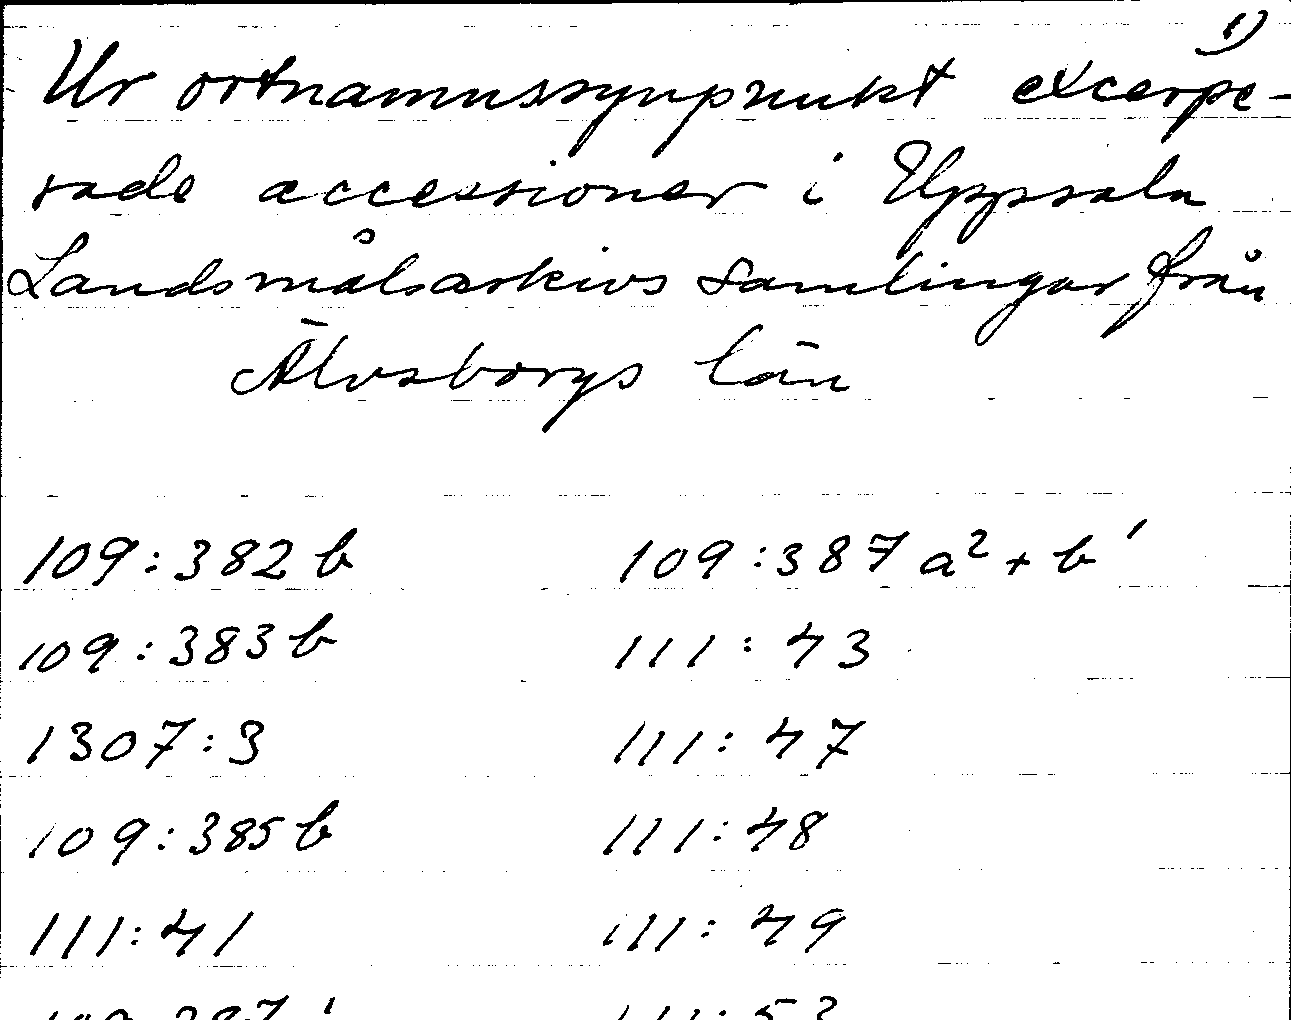 1)
Ur ortnamnssynpunkt excerpe-
rade accessioner i Uppsala
Landsmålsarkivs samlingar från
Älvsborgs län
109:382 b 109:387 a² + b¹
109:383 b 111:43
1307:3 111:47
109:385 b 111:48
111:41 111:49